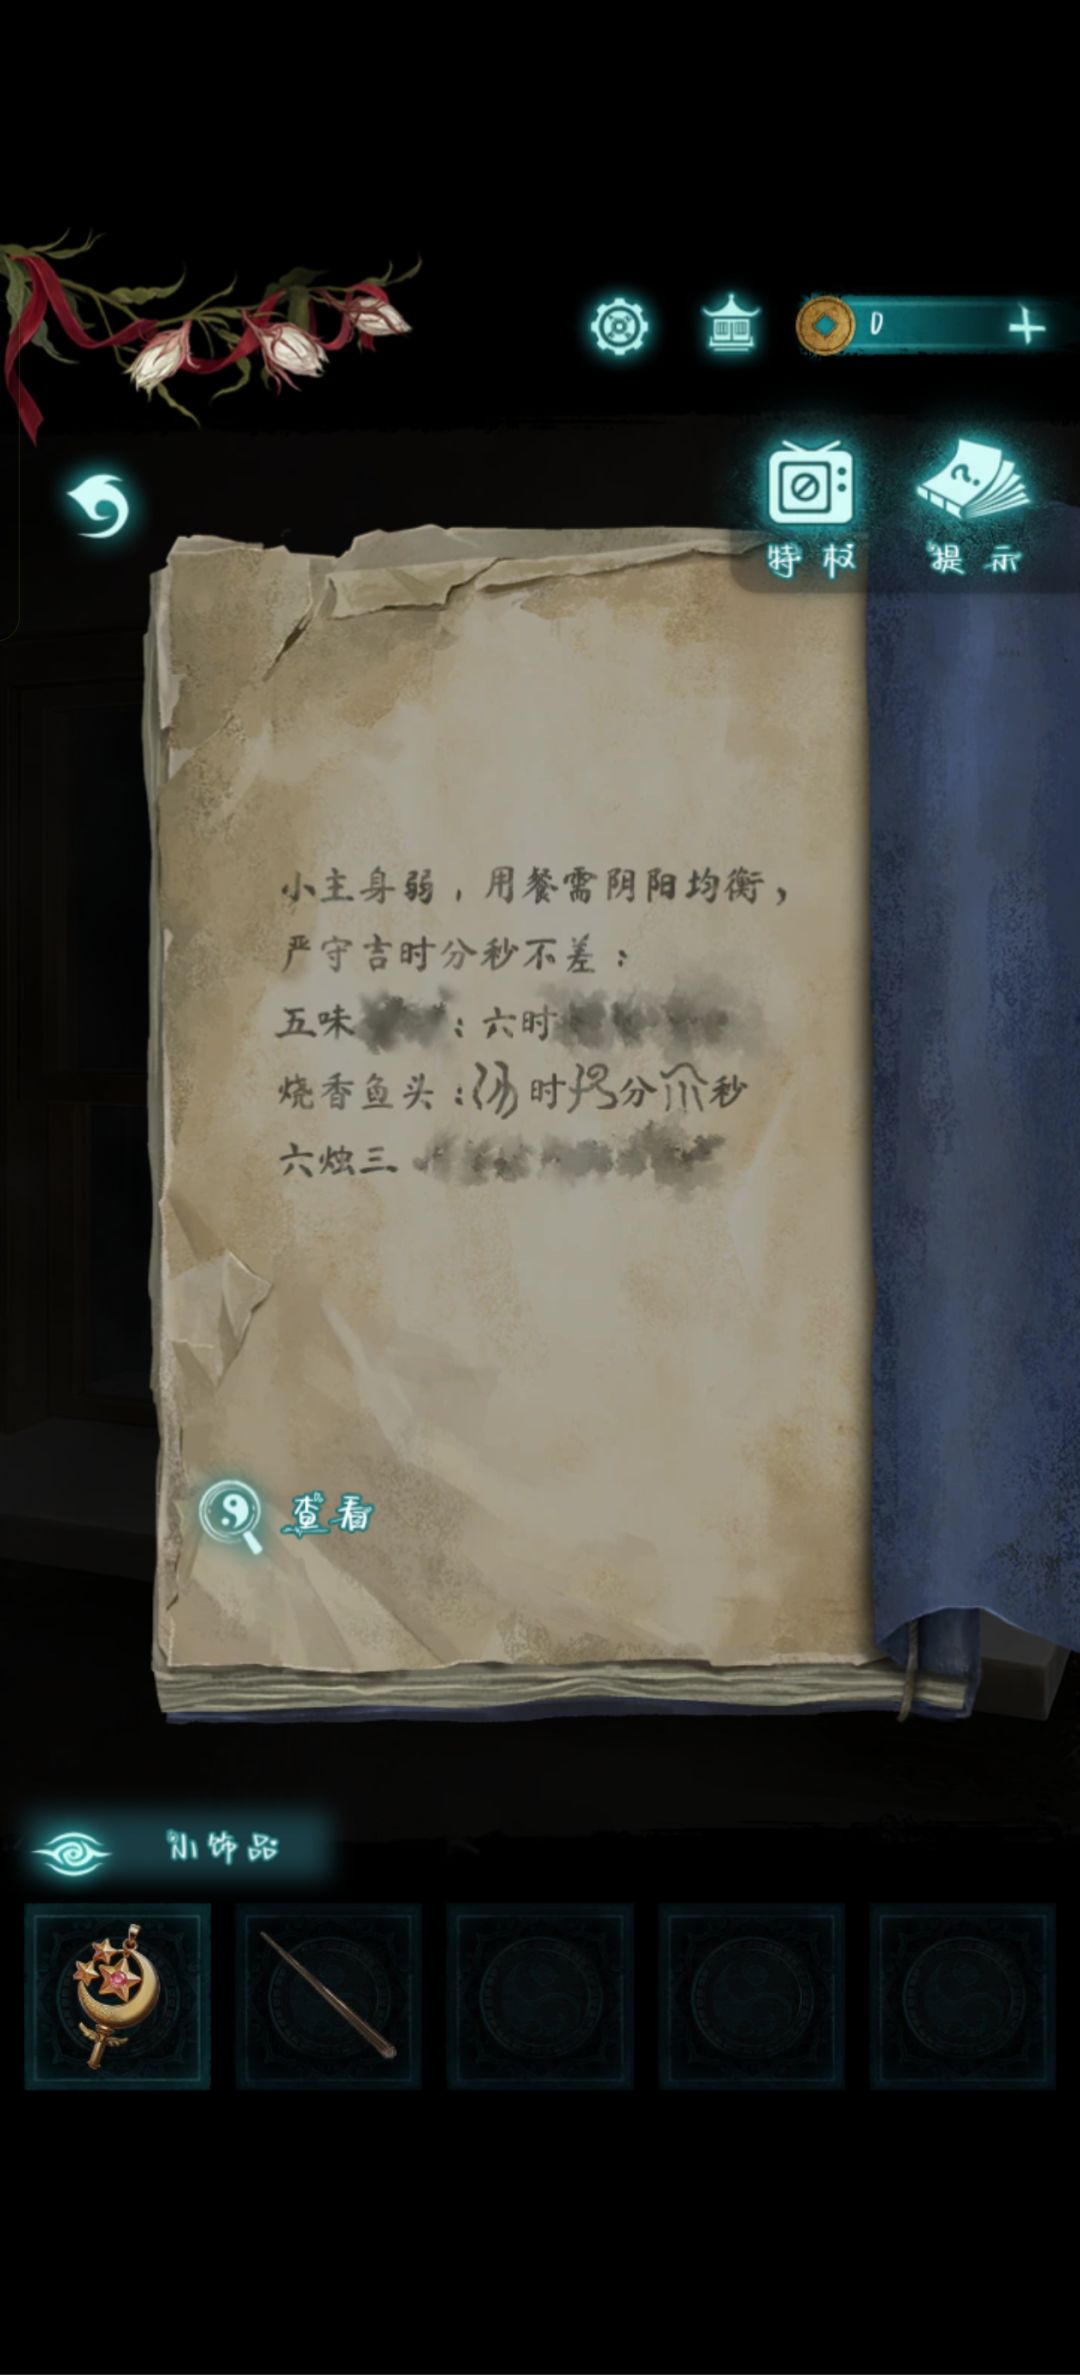 0
特权
提示
小主身弱，用餐需阴阳均衡，
严守吉时分秒不差：
五味：六时
烧香鱼头：时分秒
六烛三
查看
小饰品